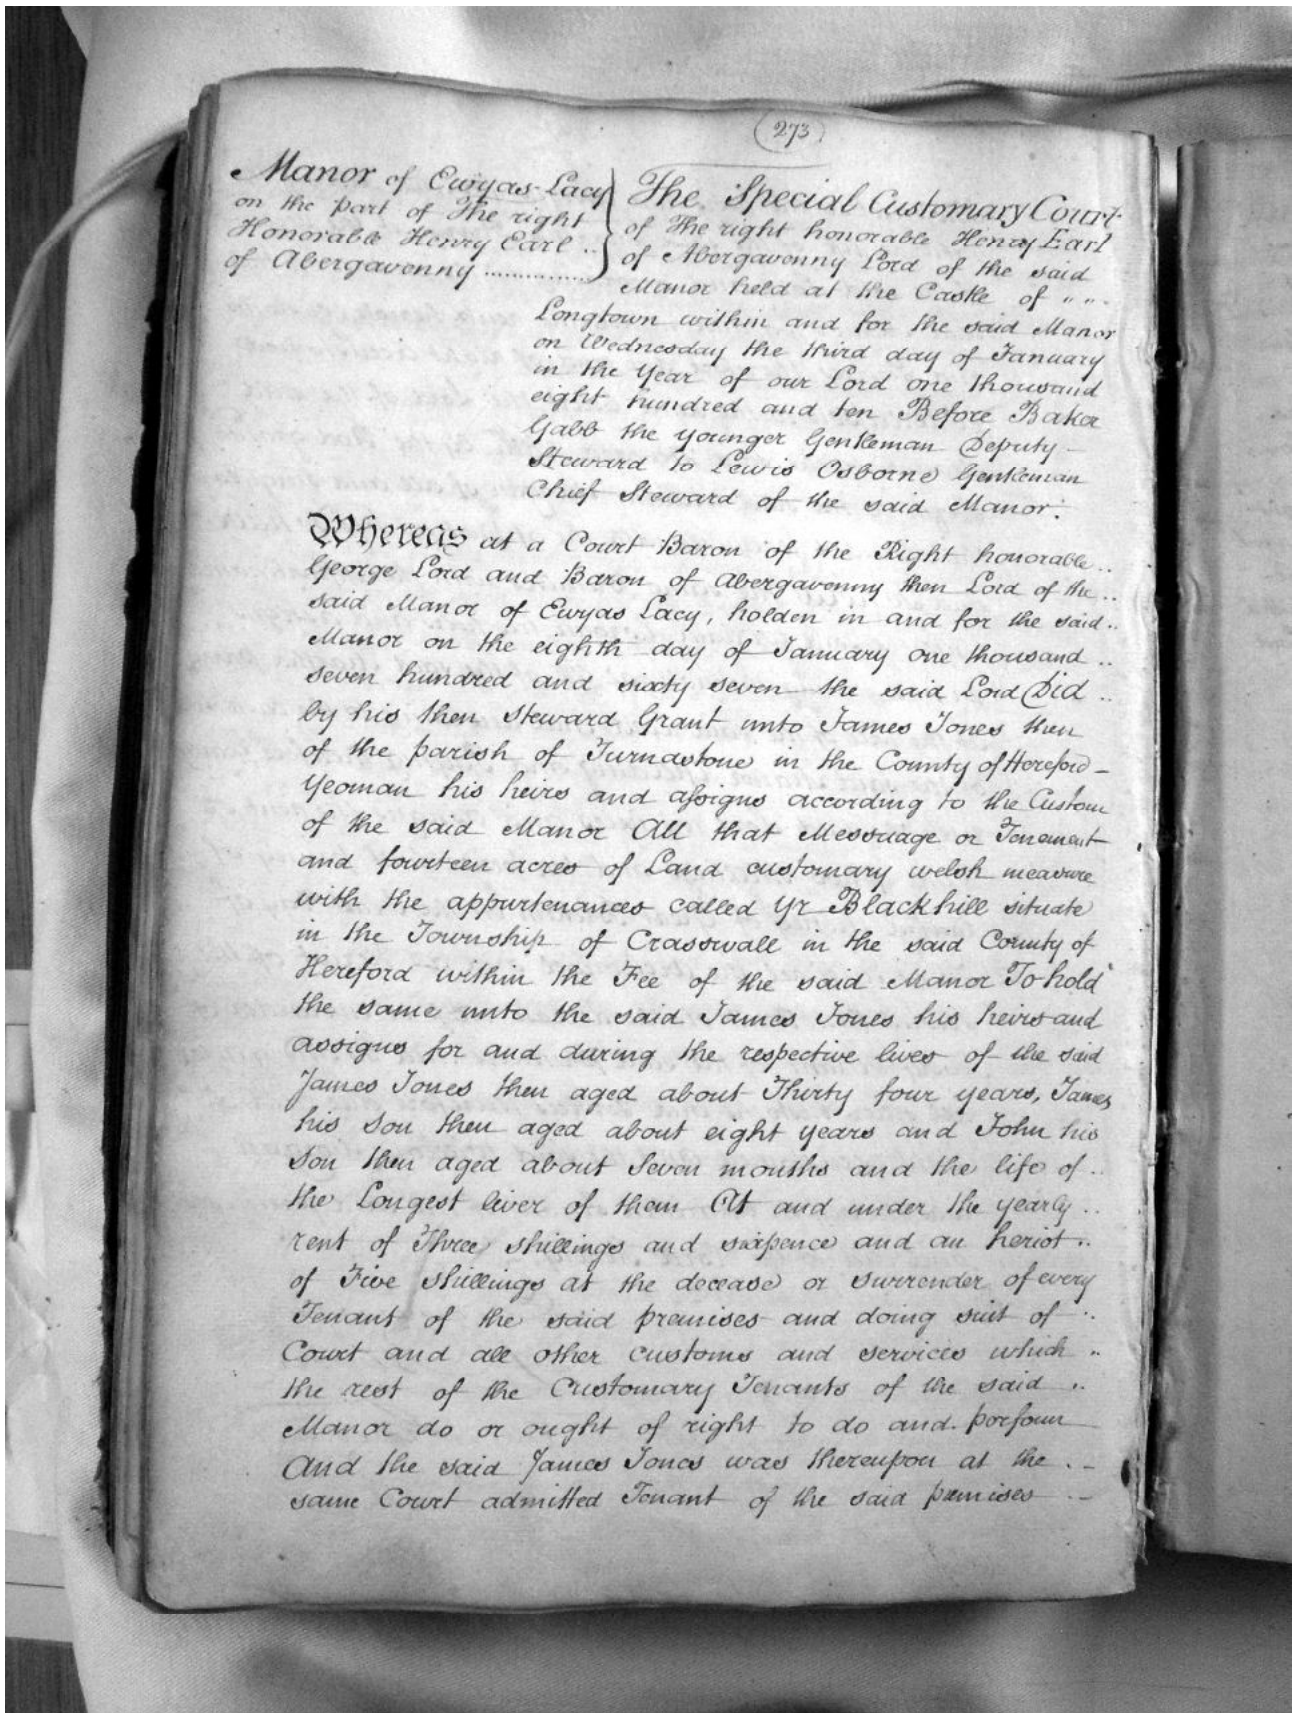 273
Manor of Ewyas-Lacy
on the part of The right
Honorable Henry Earl ..
of Abergavenny ...............
The Special Customary Court
of The right honorable Henry Earl
of Abergavenny Lord of the said
Manor held at the Castle of " " -
Longtown within and for the said Manor
on Wednesday the third day of January
in the Year of our Lord one thousand
eight hundred and ten Before Baker
Gabb the younger Gentleman Deputy -
Steward to Lewis Osborne Gentleman
Chief Steward of the said Manor.
Whereas at a Court Baron of the Right honorable ..
George Lord and Baron of Abergavenny then Lord of the ..
said Manor of Ewyas Lacy, holden in and for the said ..
Manor on the eighth day of January one thousand ..
seven hundred and sixty seven the said Lord Did ..
by his then Steward Grant unto James Jones then
of the parish of Turnastone in the County of Hereford -
Yeoman his heirs and assigns according to the Custom
of the said Manor All that Messuage or Tenement
and fourteen acres of Land customary welsh measure
with the appurtenances called Yr Blackhill situate
in the Township of Crasswall in the said County of
Hereford within the Fee of the said Manor To hold
the same unto the said James Jones his heirs and
assigns for and during the respective lives of the said
James Jones then aged about Thirty four years, James
his Son then aged about eight years and John his
Son then aged about Seven months and the life of ..
the Longest liver of them At and under the yearly ..
rent of Three shillings and sixpence and an heriot ..
of Five shillings at the decease or surrender of every
Tenant of the said premises and doing suit of ..
Court and all other customs and services which ..
the rest of the Customary Tenants of the said ..
Manor do or ought of right to do and perform
And the said James Jones was thereupon at the . -
same Court admitted Tenant of the said premises . -